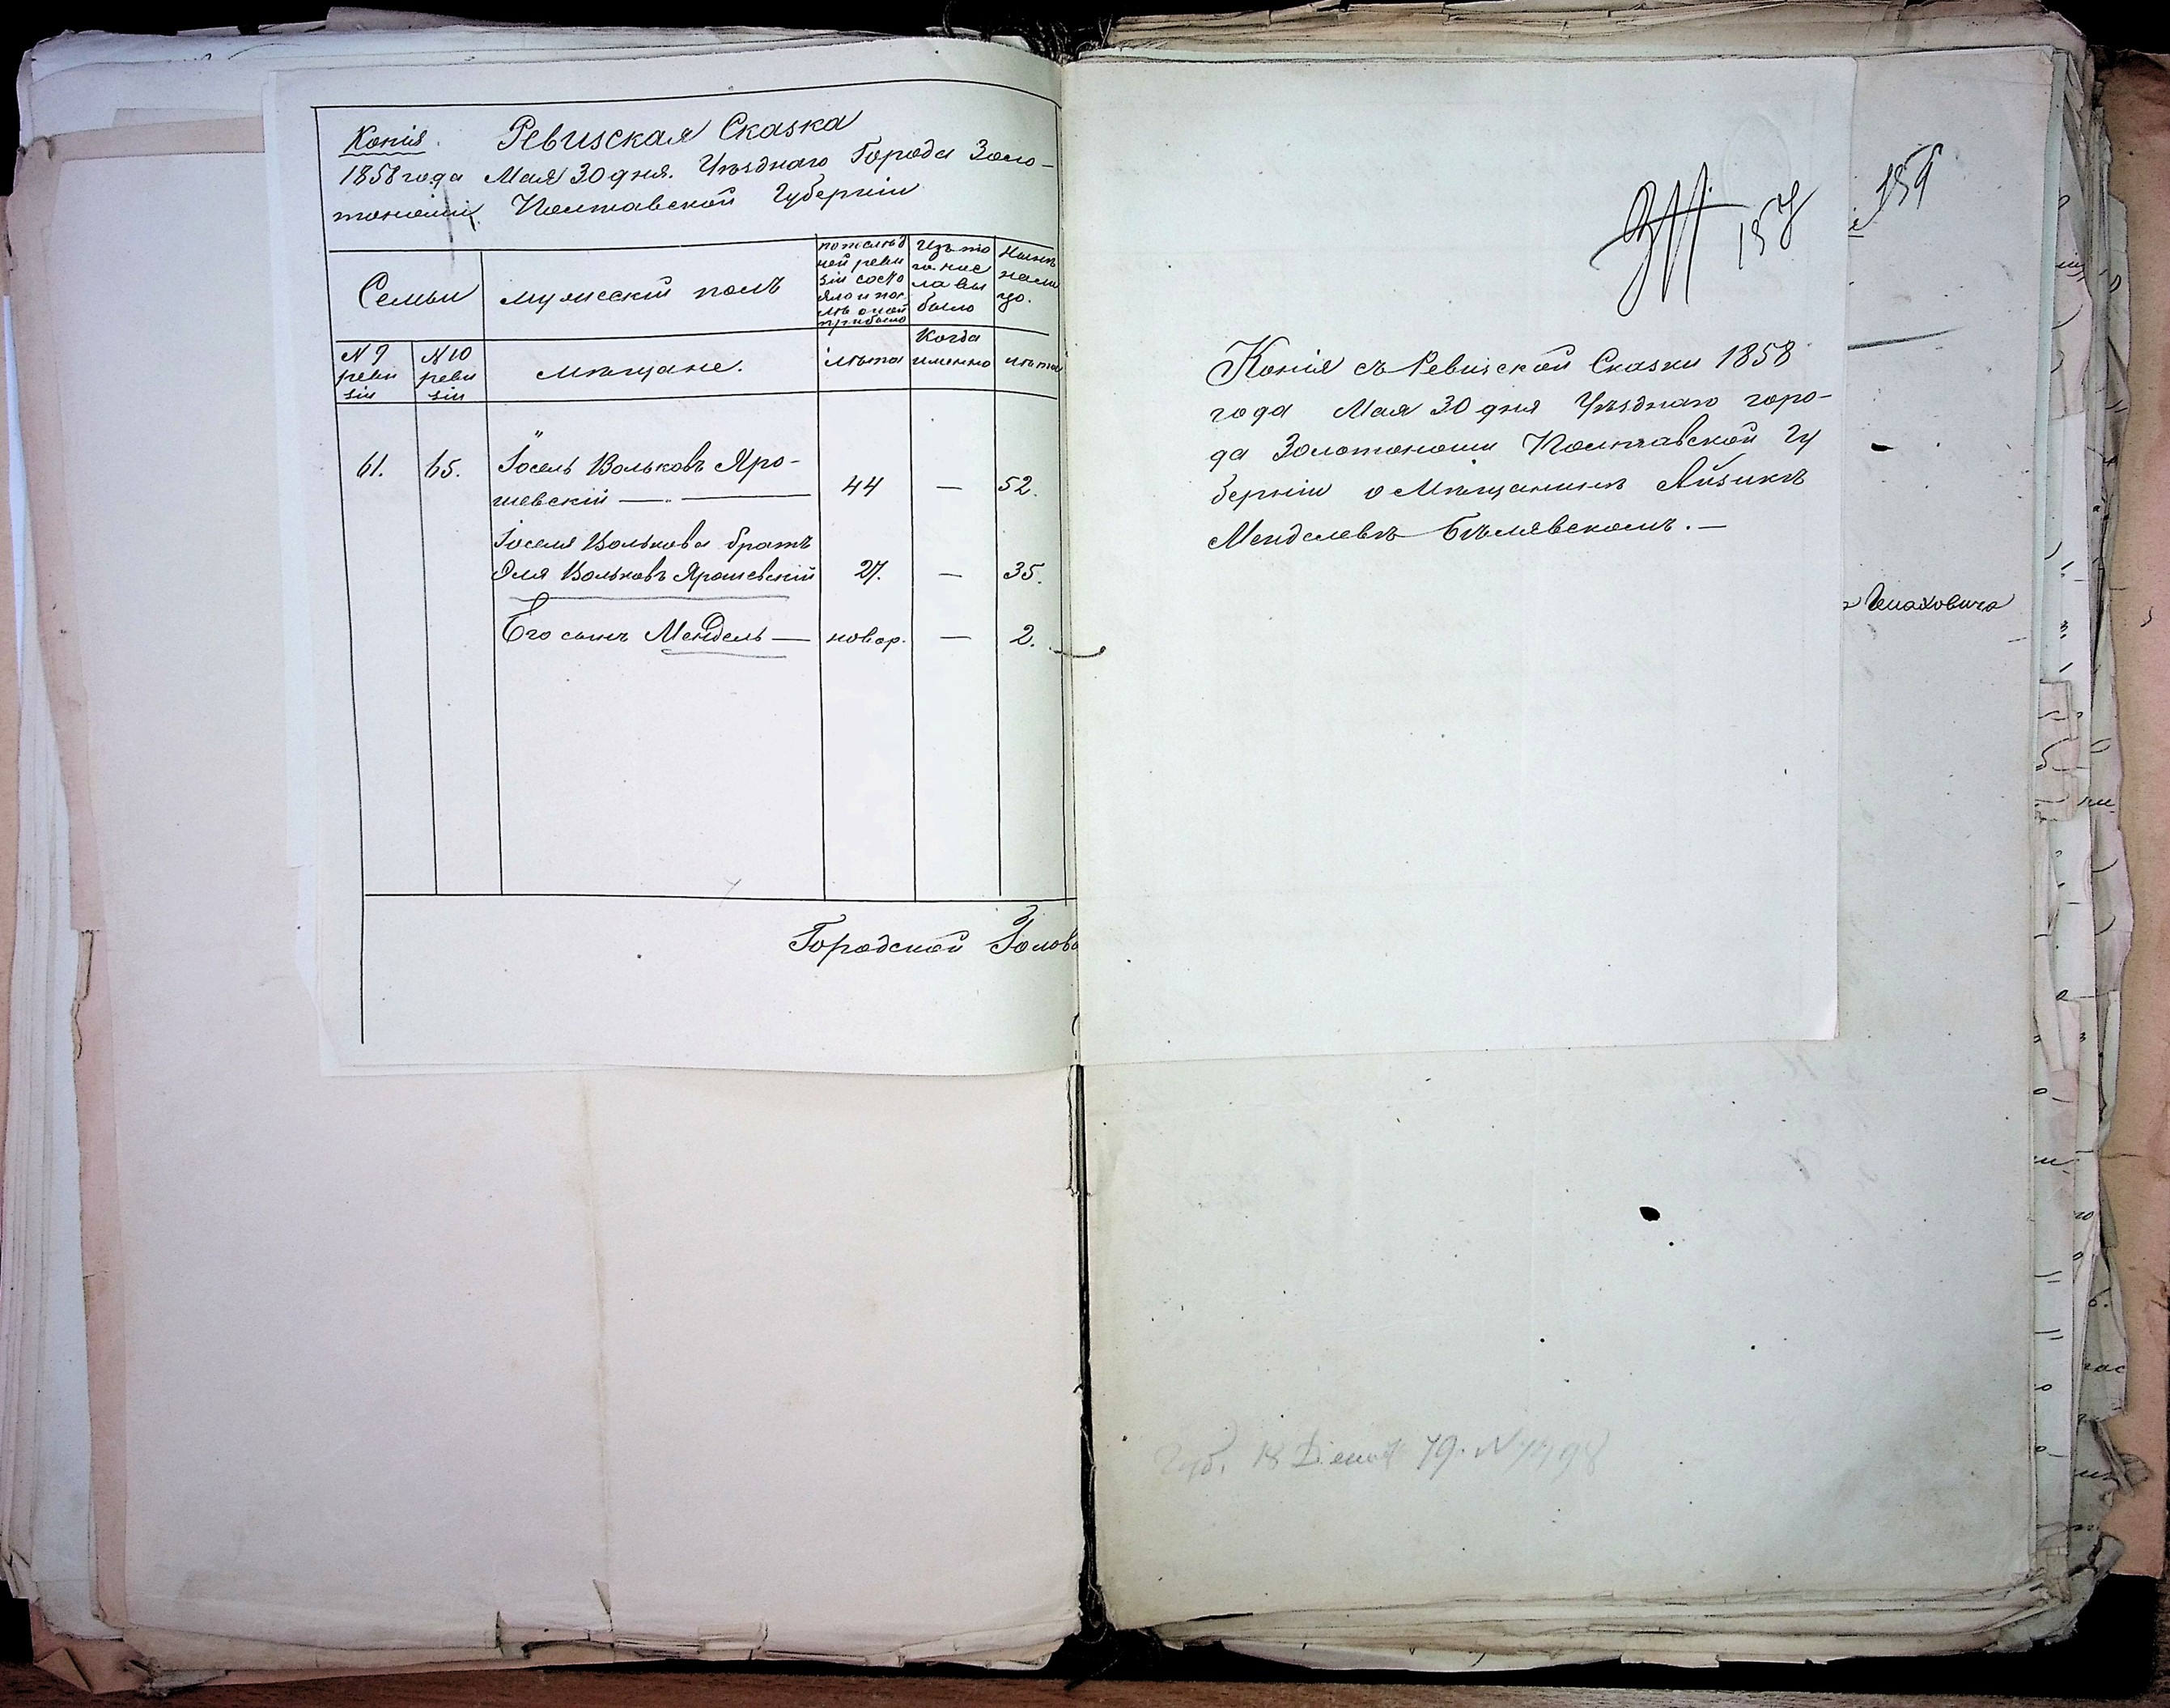 Копія. Ревизская Сказка
1858 года Мая 30 дня. Уѣзднаго Города Золо-
тоноши Полтавской Губерніи
Семьи
мужескій полъ
по послѣд
ней реви
зіи состо
яло и пос
лѣ оной
прибыло
Изъ то
го чис
ла вы
было
Нынѣ
на ли
цо.
N 9
реви
зіи
N 10
реви
зіи
Мѣщане.
лѣта
Когда
именно
лѣта
61. 65. Іосель Вольковъ Яро-
шевскій — 44 — 52.
Іоселя Волькова братъ
Эля Вольковъ Ярошевскій 27. — 35.
Его сынъ Мендель — новор. — 2.
Городской Голова
157
159
Копія съ Ревизской Сказки 1858
года Мая 30 дня Уѣзднаго горо-
да Золотоноши Полтавской Гу
берніи о Мѣщанинѣ Айзикѣ
Менделевѣ Бѣлявскомъ. —